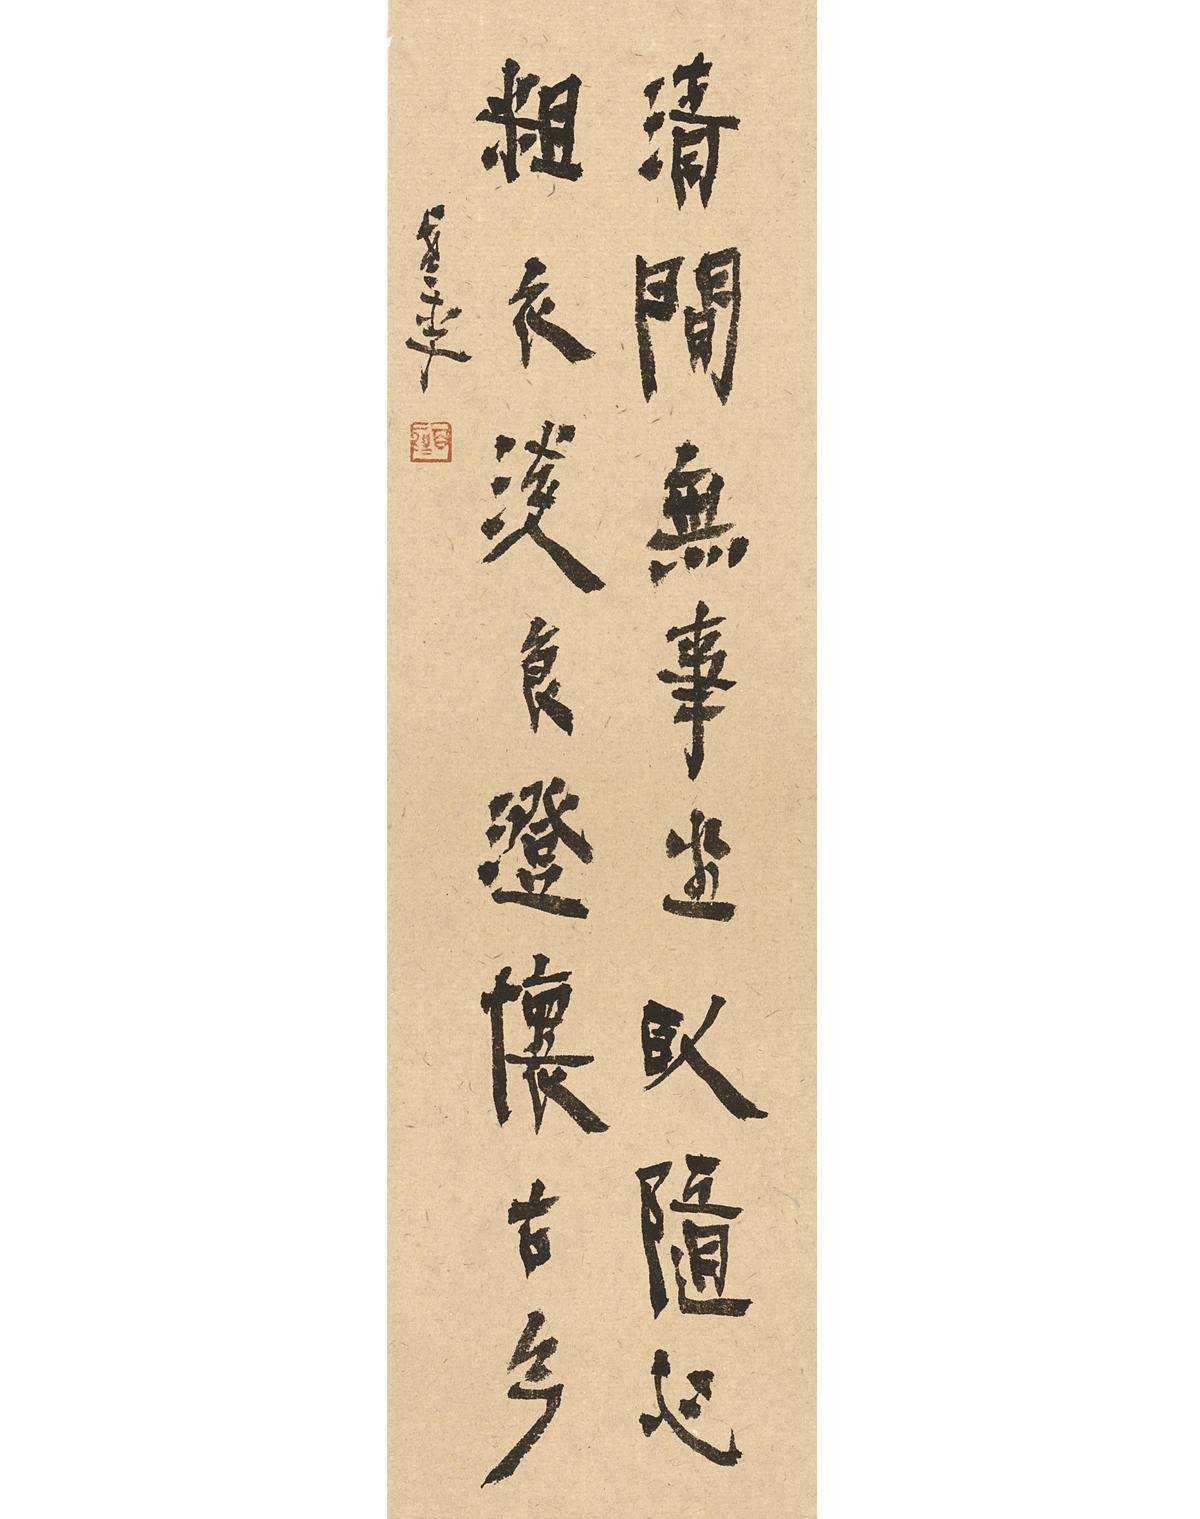 清間無事坐臥隨心
粗衣淡食澄懷古今